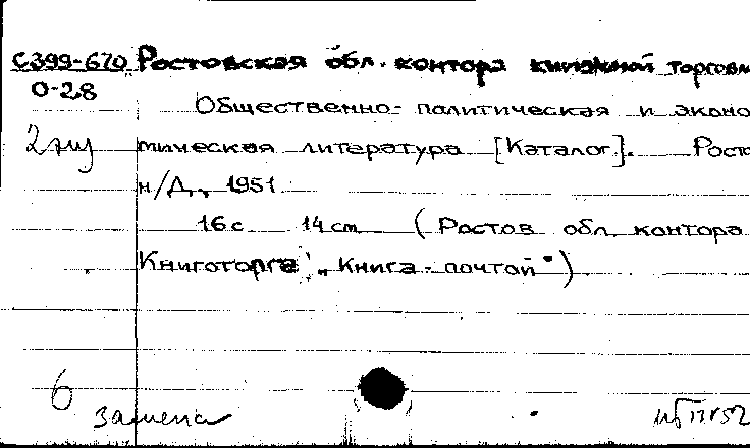 С399-670 Ростовская обл. контора книжной торговл
О-28
Общественно-политическая и эконо
2 экз
мическая литература [Каталог]. Росто
н/Д., 1951
16 с 14 cm (Ростов обл. контора
Книготорга „Книга-почтой“)
6
замена